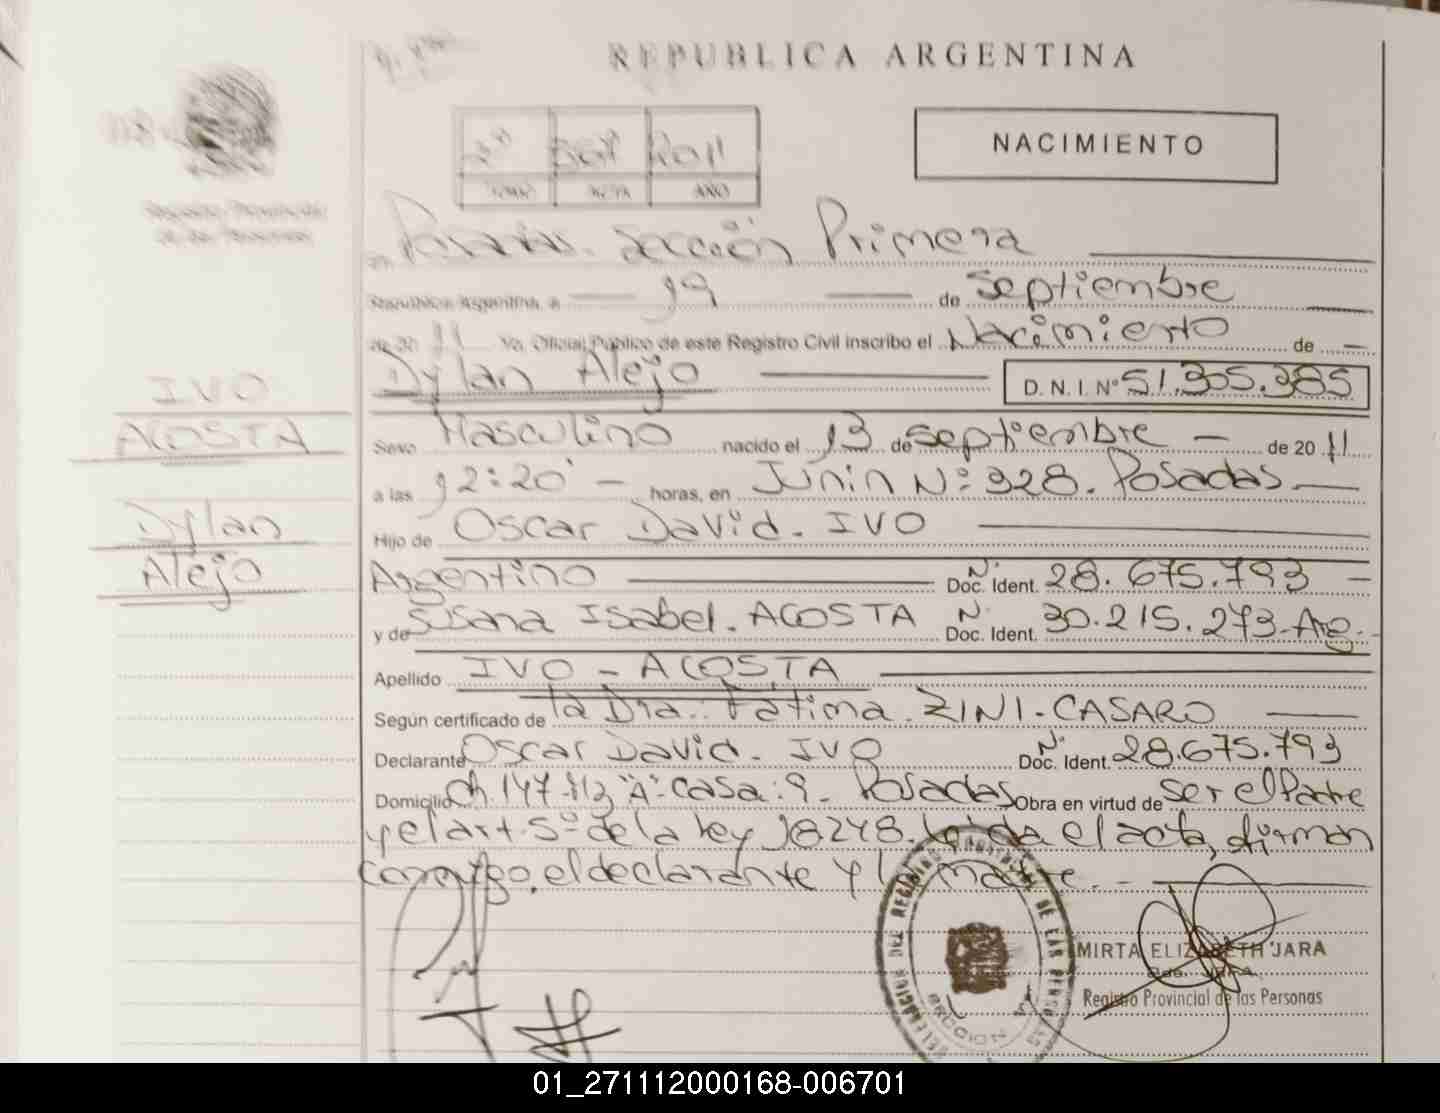 REPUBLICA ARGENTINA
2º 2011
TOMO ACTA AÑO
NACIMIENTO
Registro Provincial
de las Personas
en Posadas. Sección Primera
República Argentina, a 19 de Septiembre
de 20 11 Yo, Oficial Público de este Registro Civil inscribo el Nacimiento de
Dylan Alejo D. N. I. Nº 51.305.385
IVO
ACOSTA
Dylan
Alejo
Sexo Masculino nacido el 13 de Septiembre de 20 11
a las 12:20 horas, en Junin Nº 328. Posadas
Hijo de Oscar David. IVO
Argentino Doc. Ident. Nº 28.675.793
y de Susana Isabel. ACOSTA Doc. Ident. Nº 30.215.273-Arg.
Apellido IVO - ACOSTA
Según certificado de la Dra. Fatima. ZINI-CASARO
Declarante Oscar David. IVO Doc. Ident. Nº 28.675.793
Domicilio Ch. 147 "A" Casa: 9. Posadas Obra en virtud de ser el Padre
y el art. 5º de la ley 18248. Leida el acta, firman
conmigo, el declarante y la madre.
MIRTA ELIZABETH JARA
Registro Provincial de las Personas
01_271112000168-006701